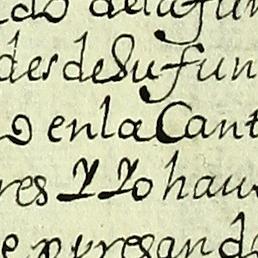 do dela fun
des de Su fun
o en la Cant
res Y Yo hau
expresando